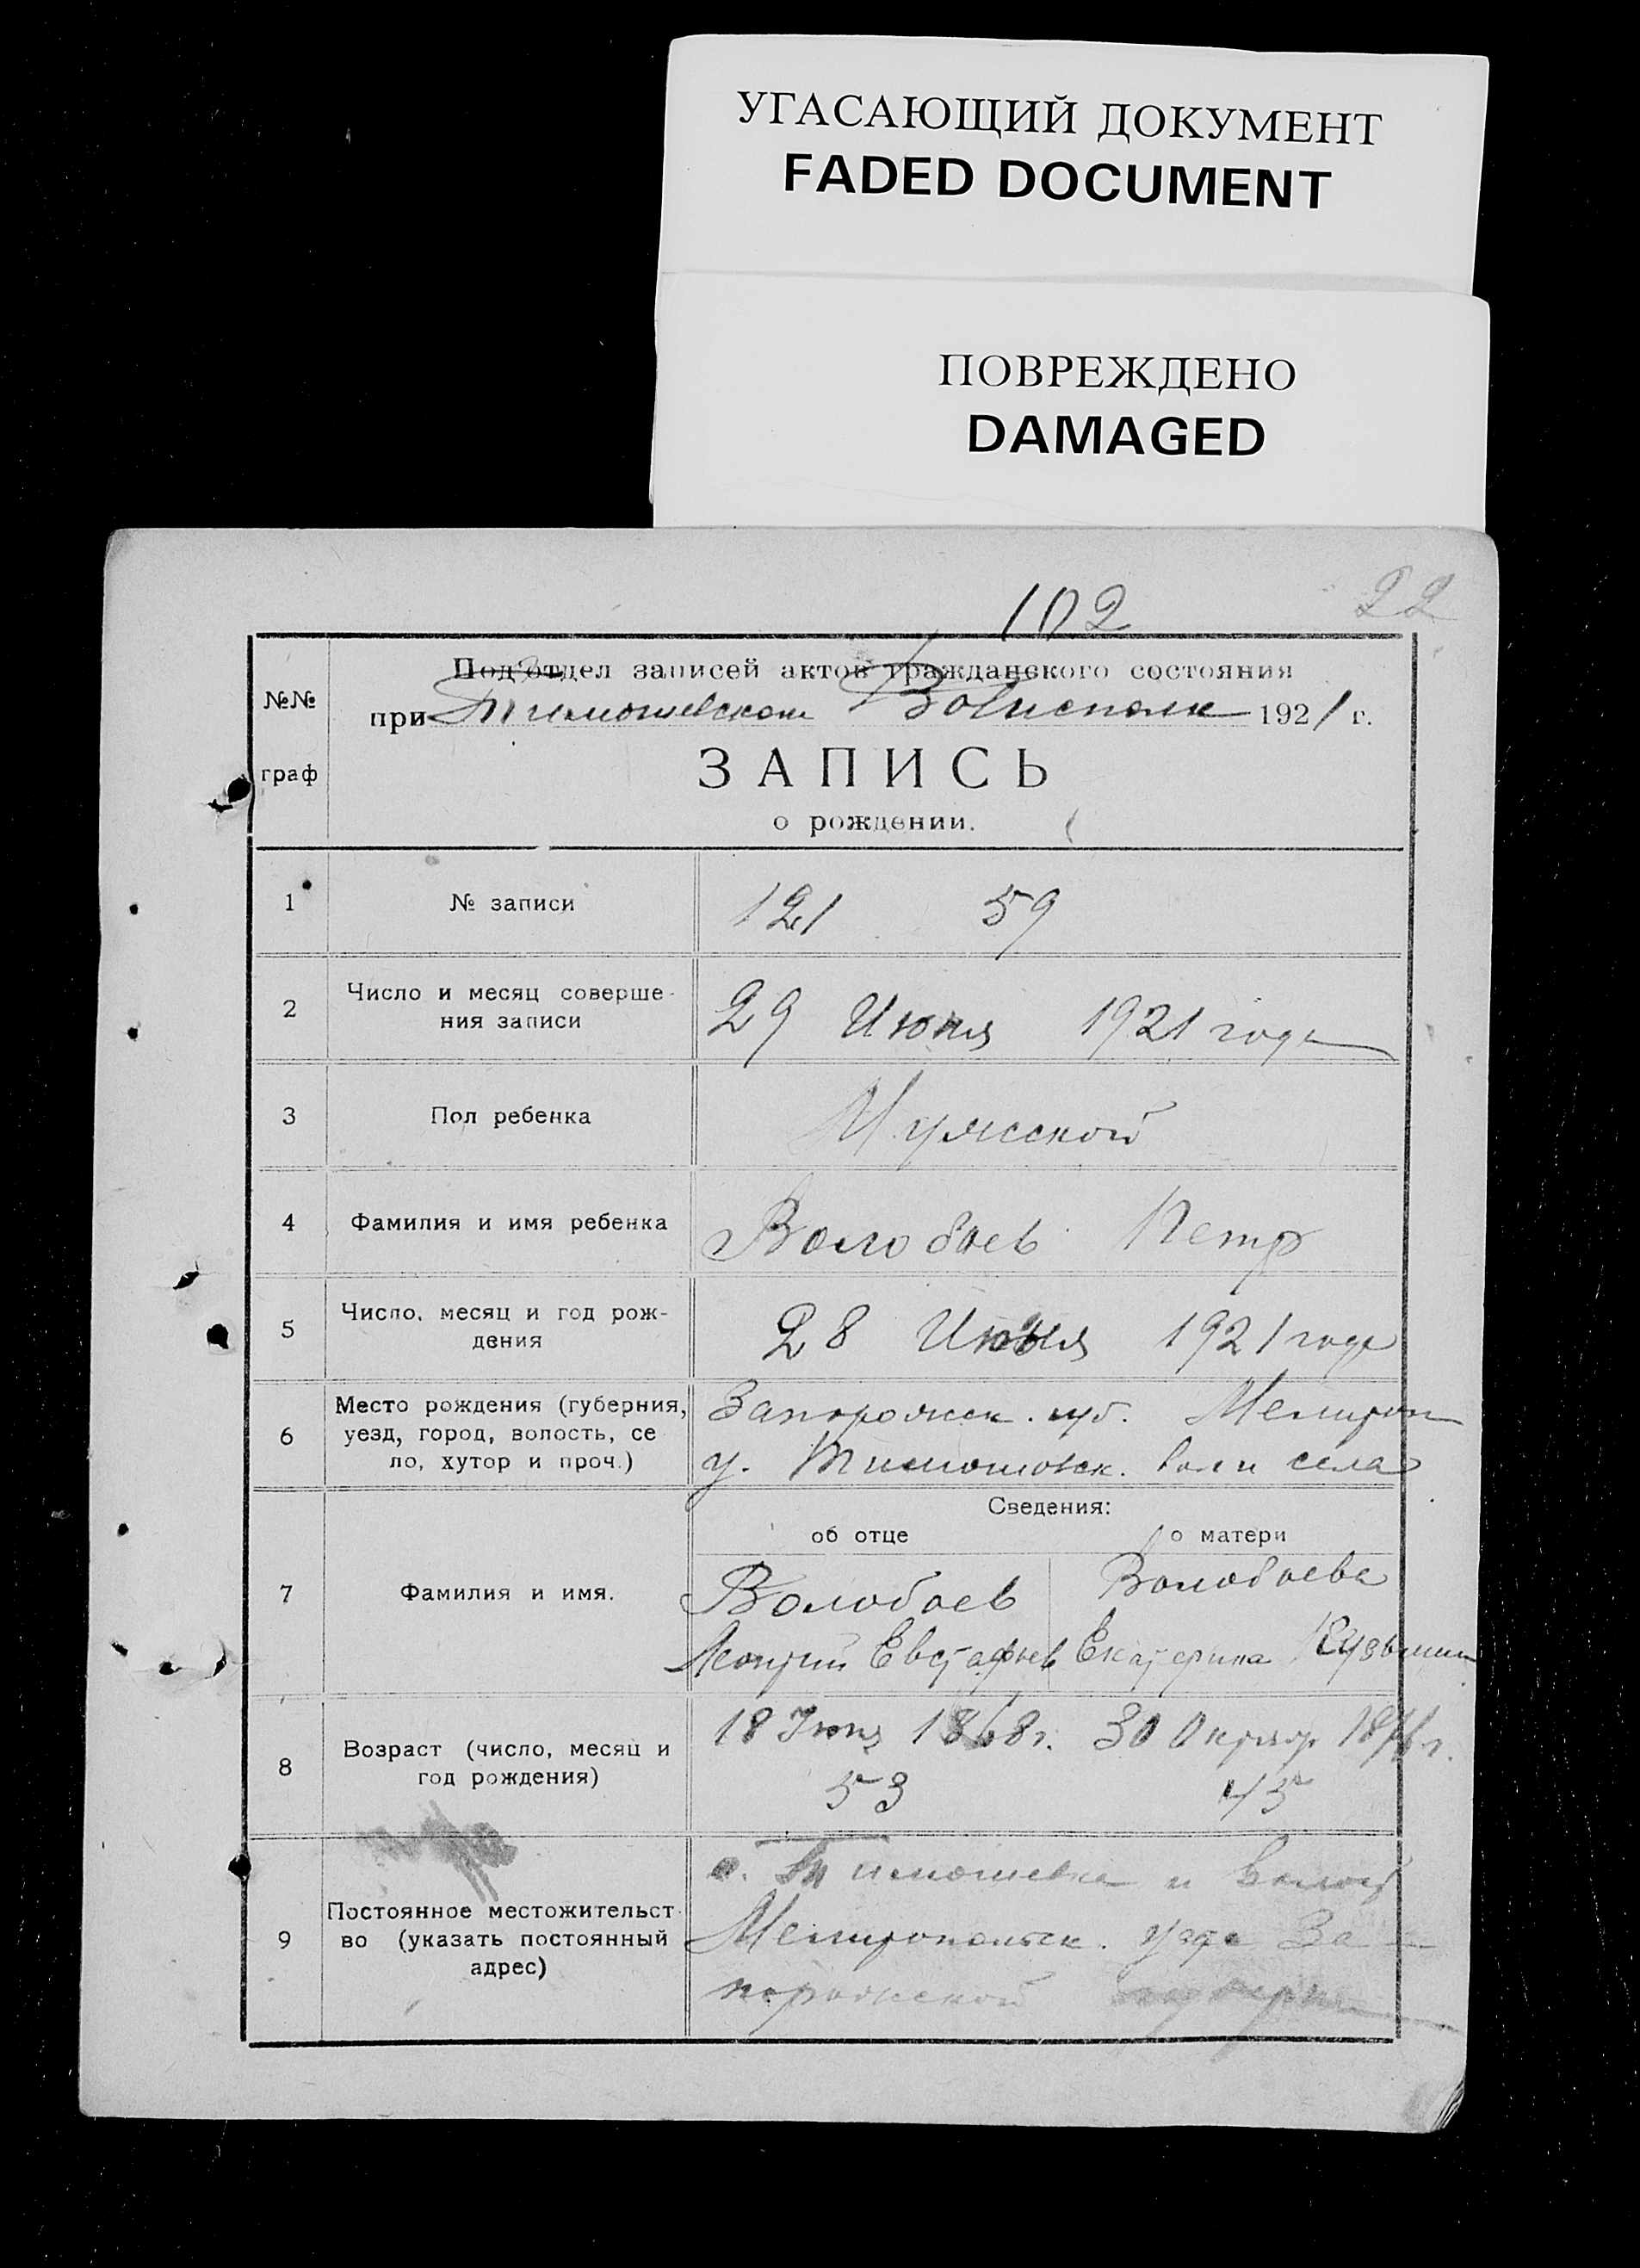 УГАСАЮЩИЙ ДОКУМЕНТ
FADED DOCUMENT
ПОВРЕЖДЕНО
DAMAGED
102 22
Под'отдел записей актов гражданского состояния
при Тимошевском Волисполк 1921 г.
№№
граф
ЗАПИСЬ
о рождении.
1 № записи 121 59
2 Число и месяц соверше-
ния записи 29 Июня 1921 года
3 Пол ребенка Мужской
4 Фамилия и имя ребенка Волобоев Петр
5 Число, месяц и год рож-
дения 28 Июня 1921 года
6 Место рождения (губерния,
уезд, город, волость, се
ло, хутор и проч.)
Запорожск. губ. Мелитоп
у. Тимошовск. вол и села
Сведения:
об отце о матери
7 Фамилия и имя.
Волобоев Волобоева
Евстафьев Екатерина Кузьмин
8 Возраст (число, месяц и
год рождения)
18 Июня 1868 г. 30 Октяб 1876 г.
53 45
9 Постоянное местожительст
во (указать постоянный
адрес)
с. Тимошевка и Волост
Мелитопольск. уезда За
порожской губерни